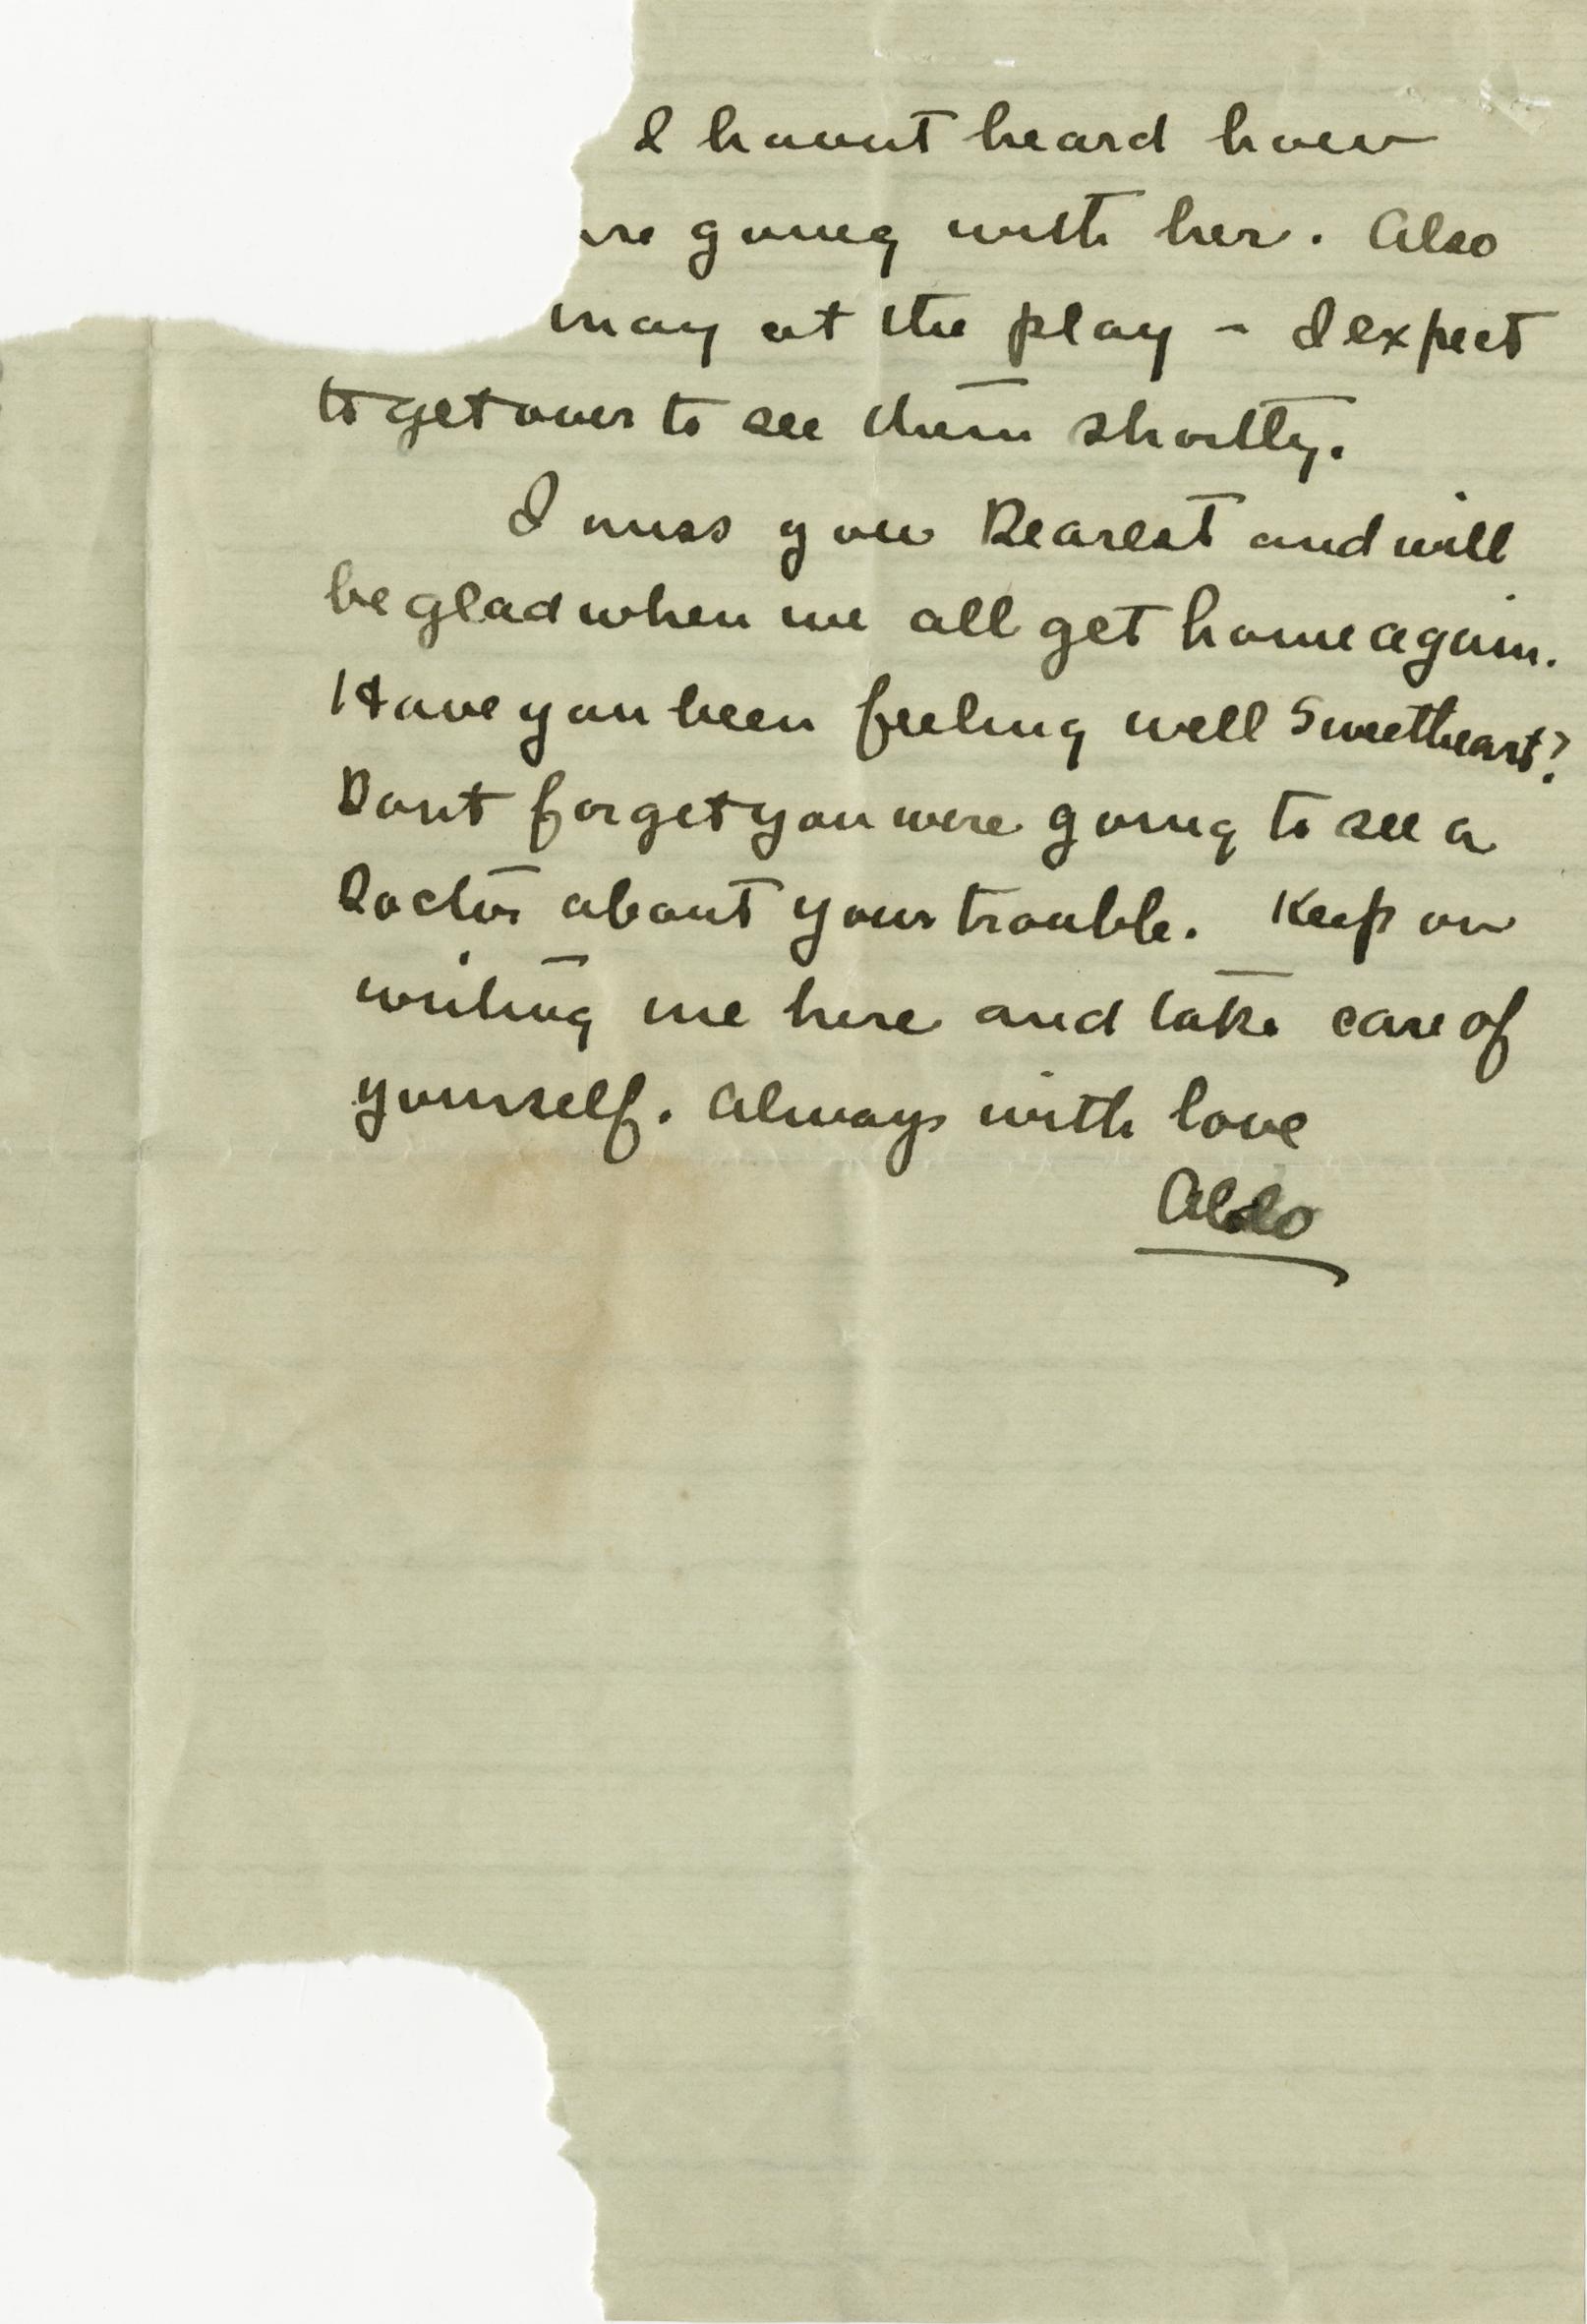 I havent heard how
are going with her. Also
may at the play - I expect
to get over to see them shortly.
I miss you Dearest and will
be glad when we all get home again.
Have you been feeling well Sweetheart?
Dont forget you were going to see a
Doctor about your trouble. Keep on
writing me here and take care of
yourself. Always with love
Aldo